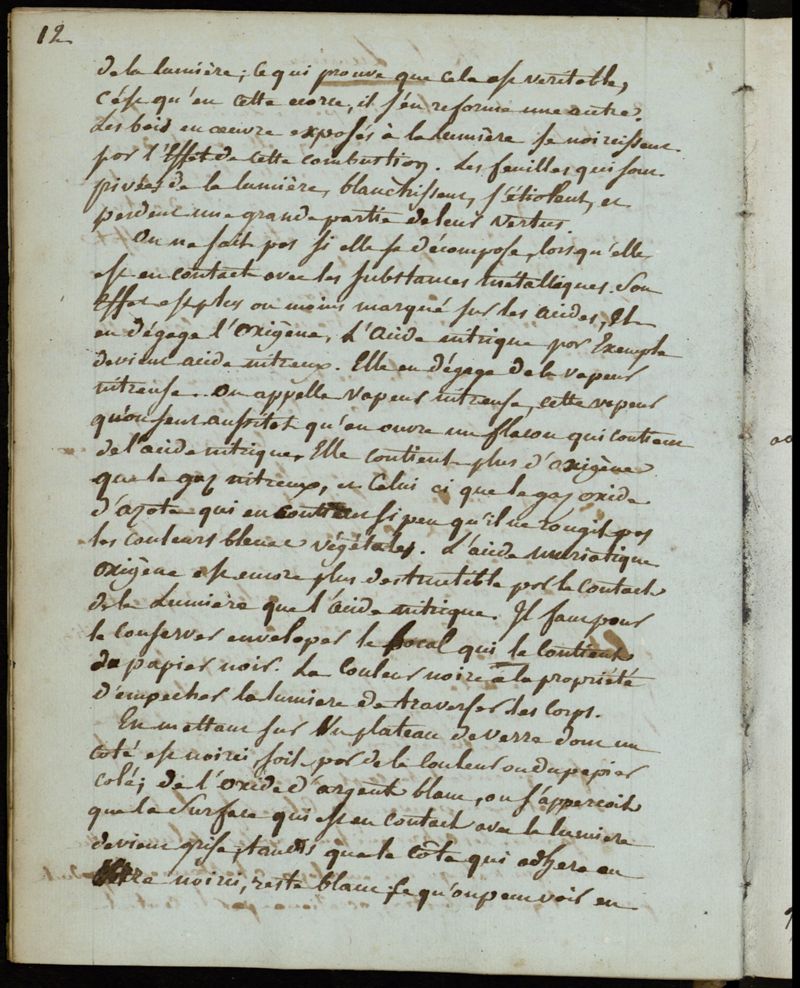 12
de la lumière; ce qui prouve que cela est veritable,
c'est qu'en cette ecorce, il s'en reforme une autre.
Les bois en oeuvre exposés à la lumière se noircissent
par l'Effet de cette combustion. Les feuilles qui sont
privées de la lumière, blanchissent, s'étiolent, et
perdent une grande partie de leurs vertus.
On ne sait pas si elle se décompose, lorsqu'elle
est en contact avec les substances métalliques. Son
Effet est plus ou moins marqué sur les acides, Elle
en dégage l'oxigène, L'acide nitrique par Exemple
devient acide nitreux. Elle en dégage de la vapeur
nitreuse. On appelle vapeur nitreuse, cette vapeur
qu'on sent aussitot qu'on ouvre un flacon qui contient
de l'acide nitrique. Elle contient plus d'oxigène
que le gaz nitreux, et celui ci que le gaz oxide
d'azote qui en contient si peu qu'il ne rougit pas
les couleurs bleues végétales. L'acide muriatique
oxigène est encore plus destructible par le contact
de la Lumière que l'acide nitrique. Il faut pour
le conserver enveloper le bocal qui le contient
de papier noir. La couleur noire à la propriété
d'empecher la lumiere de traverser les corps.
En mettant sur Un plateau de verre dont un
coté est noirci soit par de la couleur ou du papier
colé; de l'oxide d'argent blanc, on s'apperçoit
que la Surface qui est en contact avec la lumiere
devient grise, tandis que le côté qui adhere au
verre noirci, reste blanc; ce qu'on peut voir en